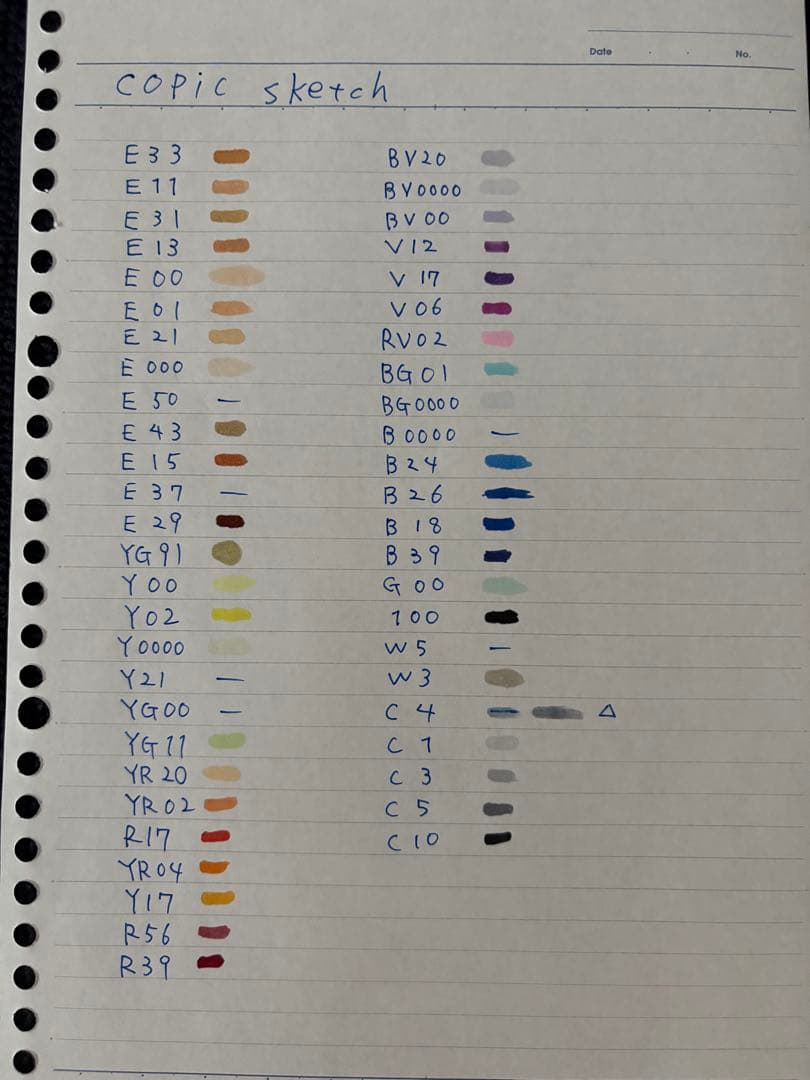 Date
No.
COPIC sketch
E33
E11
E31
E13
E00
E01
E21
E000
E50 —
E43
E15
E37 —
E29
YG91
Y00
Y02
Y0000
Y21 —
YG00 —
YG11
YR20
YR02
R17
YR04
Y17
R56
R39
BV20
BV0000
BV00
V12
V17
V06
RV02
BG01
BG0000
B0000 —
B24
B26
B18
B39
G00
100
W5 —
W3
C4 — △
C1
C3
C5
C10